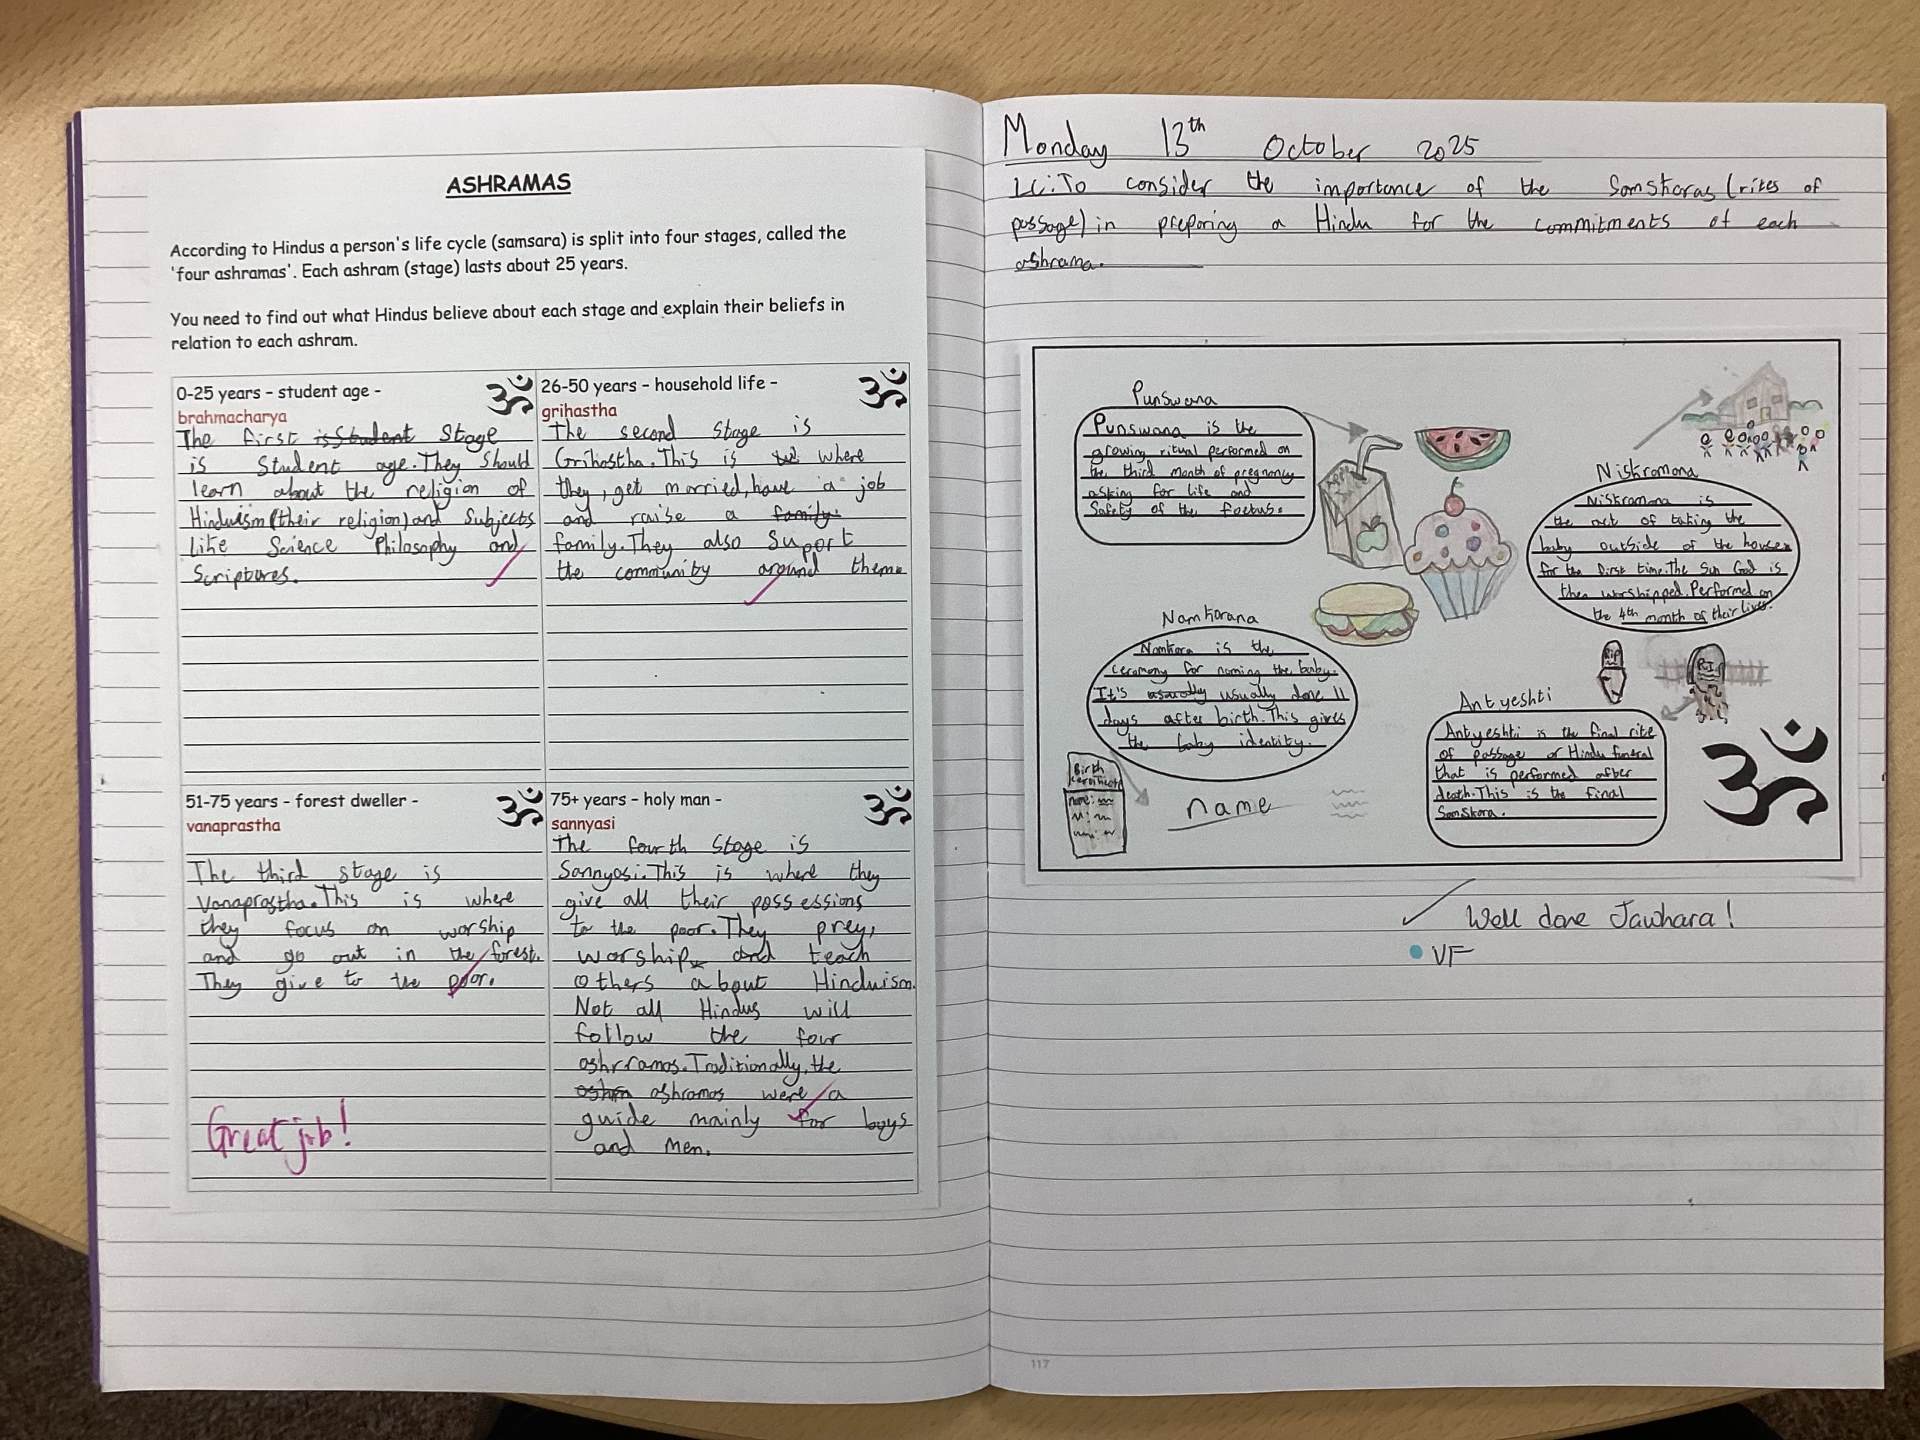 ASHRAMAS
According to Hindus a person's life cycle (samsara) is split into four stages, called the
'four ashramas'. Each ashram (stage) lasts about 25 years.
You need to find out what Hindus believe about each stage and explain their beliefs in
relation to each ashram.
0-25 years – student age -
brahmacharya
The first is Student Stage
is Student age. They should
learn about the religion of
Hinduism (their religion) and Subjects
like Science Philosophy and
Scriptures.
26-50 years – household life –
grihastha
The second stage is
Grihastha. This is where
they, get married, have a job
and raise a family
family. They also Suport
the community around them
51-75 years - forest dweller -
vanaprastha
The third stage is
Vanaprastha. This is where
they focus on worship
and go out in the forest.
They give to the poor.
Great job!
75+ years – holy man -
sannyasi
The fourth Stage is
Sannyasi. This is where they
give all their possessions
to the poor. They prey,
worship and teach
others about Hinduism.
Not all Hindus will
follow the four
ashrramas. Traditionally, the
ashramas were a
guide mainly for boys
and men.
Monday 13th October 2025
LC: To consider the importance of the Samskaras (rites of
passage) in preparing a Hindu for the commitments of each
ashrama.
Punswana
Punswana is the
growing ritual performed on
the third month of pregnancy
asking for life and
Safety of the foetus.
Niskramana
Niskramana is
the act of taking the
baby outside of the house
for the first time. The Sun God is
then worshipped. Performed on
the 4th month of their lives.
Namkarana
Namkara is the
ceremony for naming the baby.
It's usually usually done 11
days after birth. This gives
the baby identity.
Birth
name:
name
Rip
R.I.P
Antyeshti
Antyeshti is the final rite
of passage or Hindu funeral
that is performed after
death. This is the final
Samskara.
Well done Jawhara!
VF
117